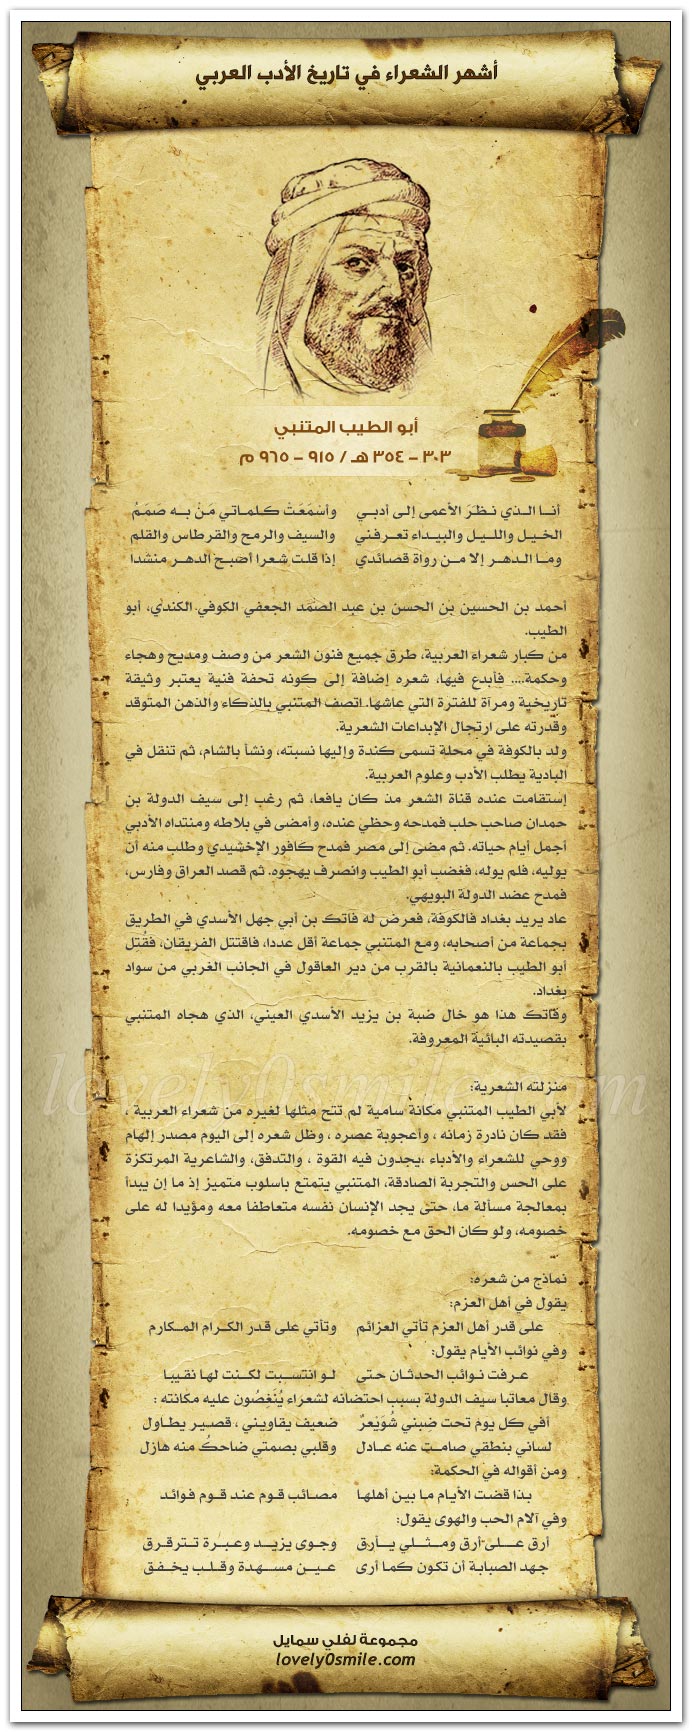 أشهر الشعراء في تاريخ الأدب العربي
أبو الطيب المتنبي
٣٠٣ - ٣٥٤ هـ / ٩١٥ - ٩٦٥ م
أنـا الـذي نـظـرَ الأعمى إلى أدبـي وأسمَعَتْ كـلمـاتي مَنْ بـه صَمَمُ
الخـيـل والليـل والبيـداء تعـرفني والسيف والرمح والقرطاس والقلم
ومـا الـدهـر إلا مـن رواة قصائدي إذا قلت شعرا أصبـح الدهـر منشدا
أحمد بن الحسين بن الحسن بن عبد الصمد الجعفي الكوفي الكندي، أبو
الطيب.
من كبار شعراء العربية، طرق جميع فنون الشعر من وصف ومديح وهجاء
وحكمة.... فأبدع فيها، شعره إضافة إلى كونه تحفة فنية يعتبر وثيقة
تاريخية ومرآة للفترة التي عاشها. اتصف المتنبي بالذكاء والذهن المتوقد
وقدرته على ارتجال الإبداعات الشعرية.
ولد بالكوفة في محلة تسمى كندة وإليها نسبته، ونشأ بالشام، ثم تنقل في
البادية يطلب الأدب وعلوم العربية.
إستقامت عنده قناة الشعر مذ كان يافعا، ثم رغب إلى سيف الدولة بن
حمدان صاحب حلب فمدحه وحظي عنده، وأمضى في بلاطه ومنتداه الأدبي
أجمل أيام حياته. ثم مضى إلى مصر فمدح كافور الإخشيدي وطلب منه أن
يوليه، فلم يوله، فغضب أبو الطيب وانصرف يهجوه. ثم قصد العراق وفارس،
فمدح عضد الدولة البويهي.
عاد يريد بغداد فالكوفة، فعرض له فاتك بن أبي جهل الأسدي في الطريق
بجماعة من أصحابه، ومع المتنبي جماعة أقل عددا، فاقتتل الفريقان، فقُتل
أبو الطيب بالنعمانية بالقرب من دير العاقول في الجانب الغربي من سواد
بغداد.
وفاتك هذا هو خال ضبة بن يزيد الأسدي العيني، الذي هجاه المتنبي
بقصيدته البائية المعروفة.
lovely0smile.com
منزلته الشعرية:
لأبي الطيب المتنبي مكانة سامية لم تتح مثلها لغيره من شعراء العربية ،
فقد كان نادرة زمانه ، وأعجوبة عصره ، وظل شعره إلى اليوم مصدر إلهام
ووحي للشعراء والأدباء ،يجدون فيه القوة ، والتدفق، والشاعرية المرتكزة
على الحس والتجربة الصادقة، المتنبي يتمتع باسلوب متميز إذ ما إن يبدأ
بمعالجة مسألة ما، حتى يجد الإنسان نفسه متعاطفا معه ومؤيدا له على
خصومه، ولو كان الحق مع خصومه.
نماذج من شعره:
يقول في أهل العزم:
على قدر أهل العزم تأتي العزائم وتأتي على قدر الكـرام المـكـارم
وفي نوائب الأيام يقول:
عـرفت نـوائب الحدثـان حتـى لـو انتسـبت لكـنت لها نقيبا
وقال معاتبا سيف الدولة بسبب احتضانه لشعراء يُنْغِصُون عليه مكانته :
أفي كل يوم تحت ضبني شُوَيْعرٌ ضعيف يقاويني ، قصير يطاول
لساني بنطقي صامت عنه عـادل وقلبي بصمتي ضاحكُ منه هازل
ومن أقواله في الحكمة:
بذا قضت الأيام ما بين أهلها مصائب قوم عند قوم فوائد
وفي آلام الحب والهوى يقول:
أرق عـلـى أرق ومـثـلي يـأرق وجـوى يزيـد وعبـرة تـترقـرق
جهد الصبابة أن تكون كما أرى عـين مسـهدة وقـلـب يخـفـق
مجموعة لفلي سمايل
lovely0smile.com